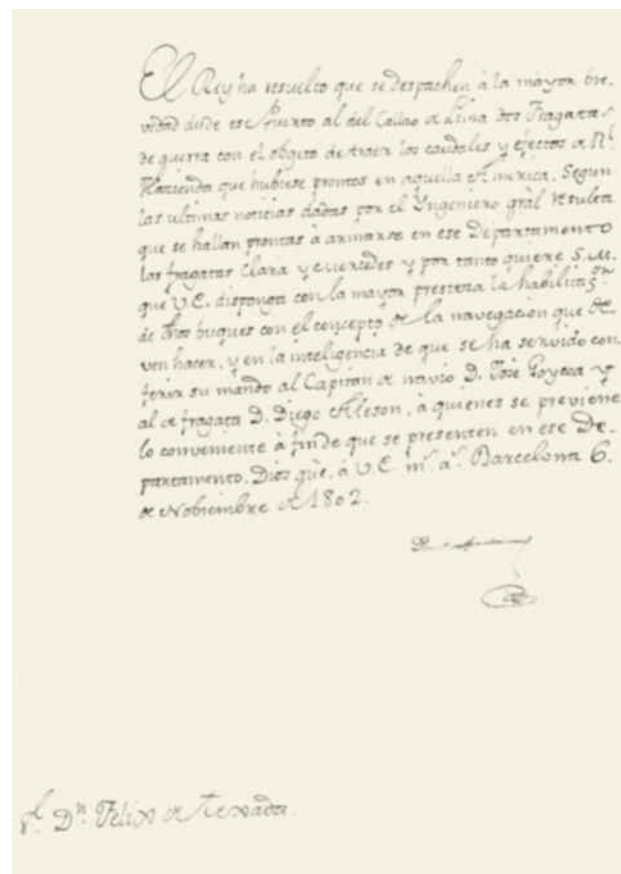 El Rey ha resuelto que se despachen à la mayor bre-
vedad desde ese Puerto al del Callao de Lima dos Fragatas
de guerra con el objeto de traer los caudales y efectos de Rl.
Hacienda que hubiese prontos en aquella America. Segun
las ultimas noticias dadas por el Yngeniero gràl resulta
que se hallan prontas à armarse en ese Departamento
las fragatas Clara y Mercedes y por tanto quiere S.M.
que V.E. disponga con la mayor presteza la habilitazon.
de dhos buques con el concepto de la navegacion que de-
ven hacer, y en la inteligencia de que se ha servido con
ferir su mando al Capitan de navio D. Josè Goycoa y
al de fragata D. Diego Aleson, à quienes se previene
lo conveniente à fin de que se presenten en ese De-
partamento. Dios gùe. à V.E. ms. as. Barcelona 6.
de Nobiembre de 1802.
Sr. Dn. Felix de Texada.